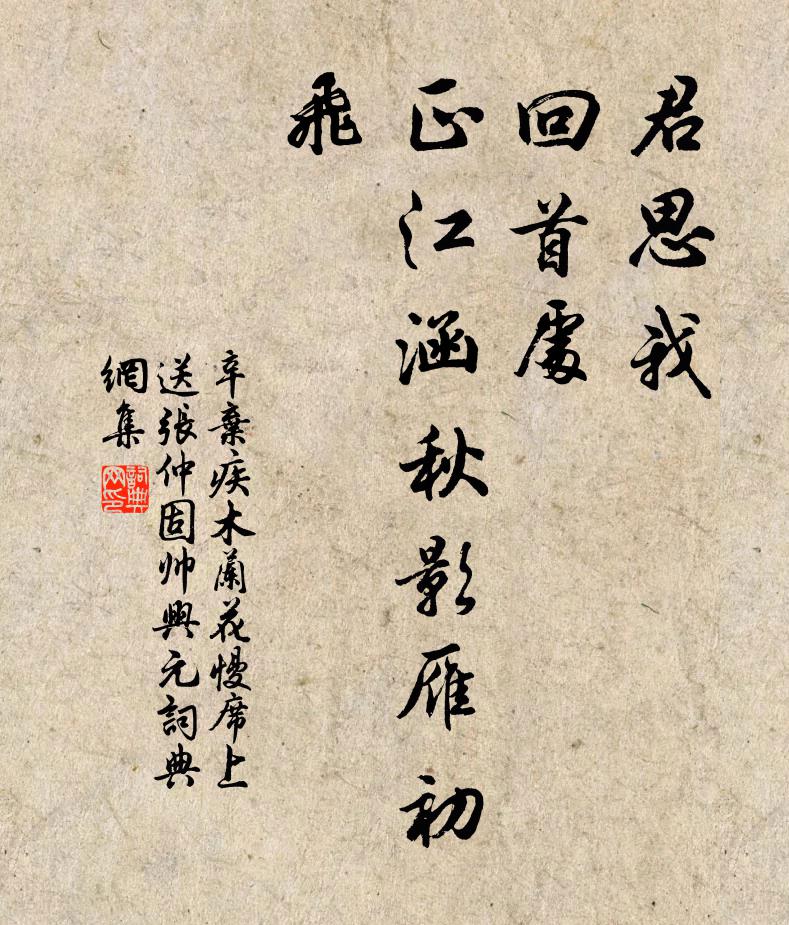 君思我
回首處
正江涵秋影雁初
飛
辛棄疾木蘭花慢席上
送張仲固帅興元詞典
網集
詞典網印